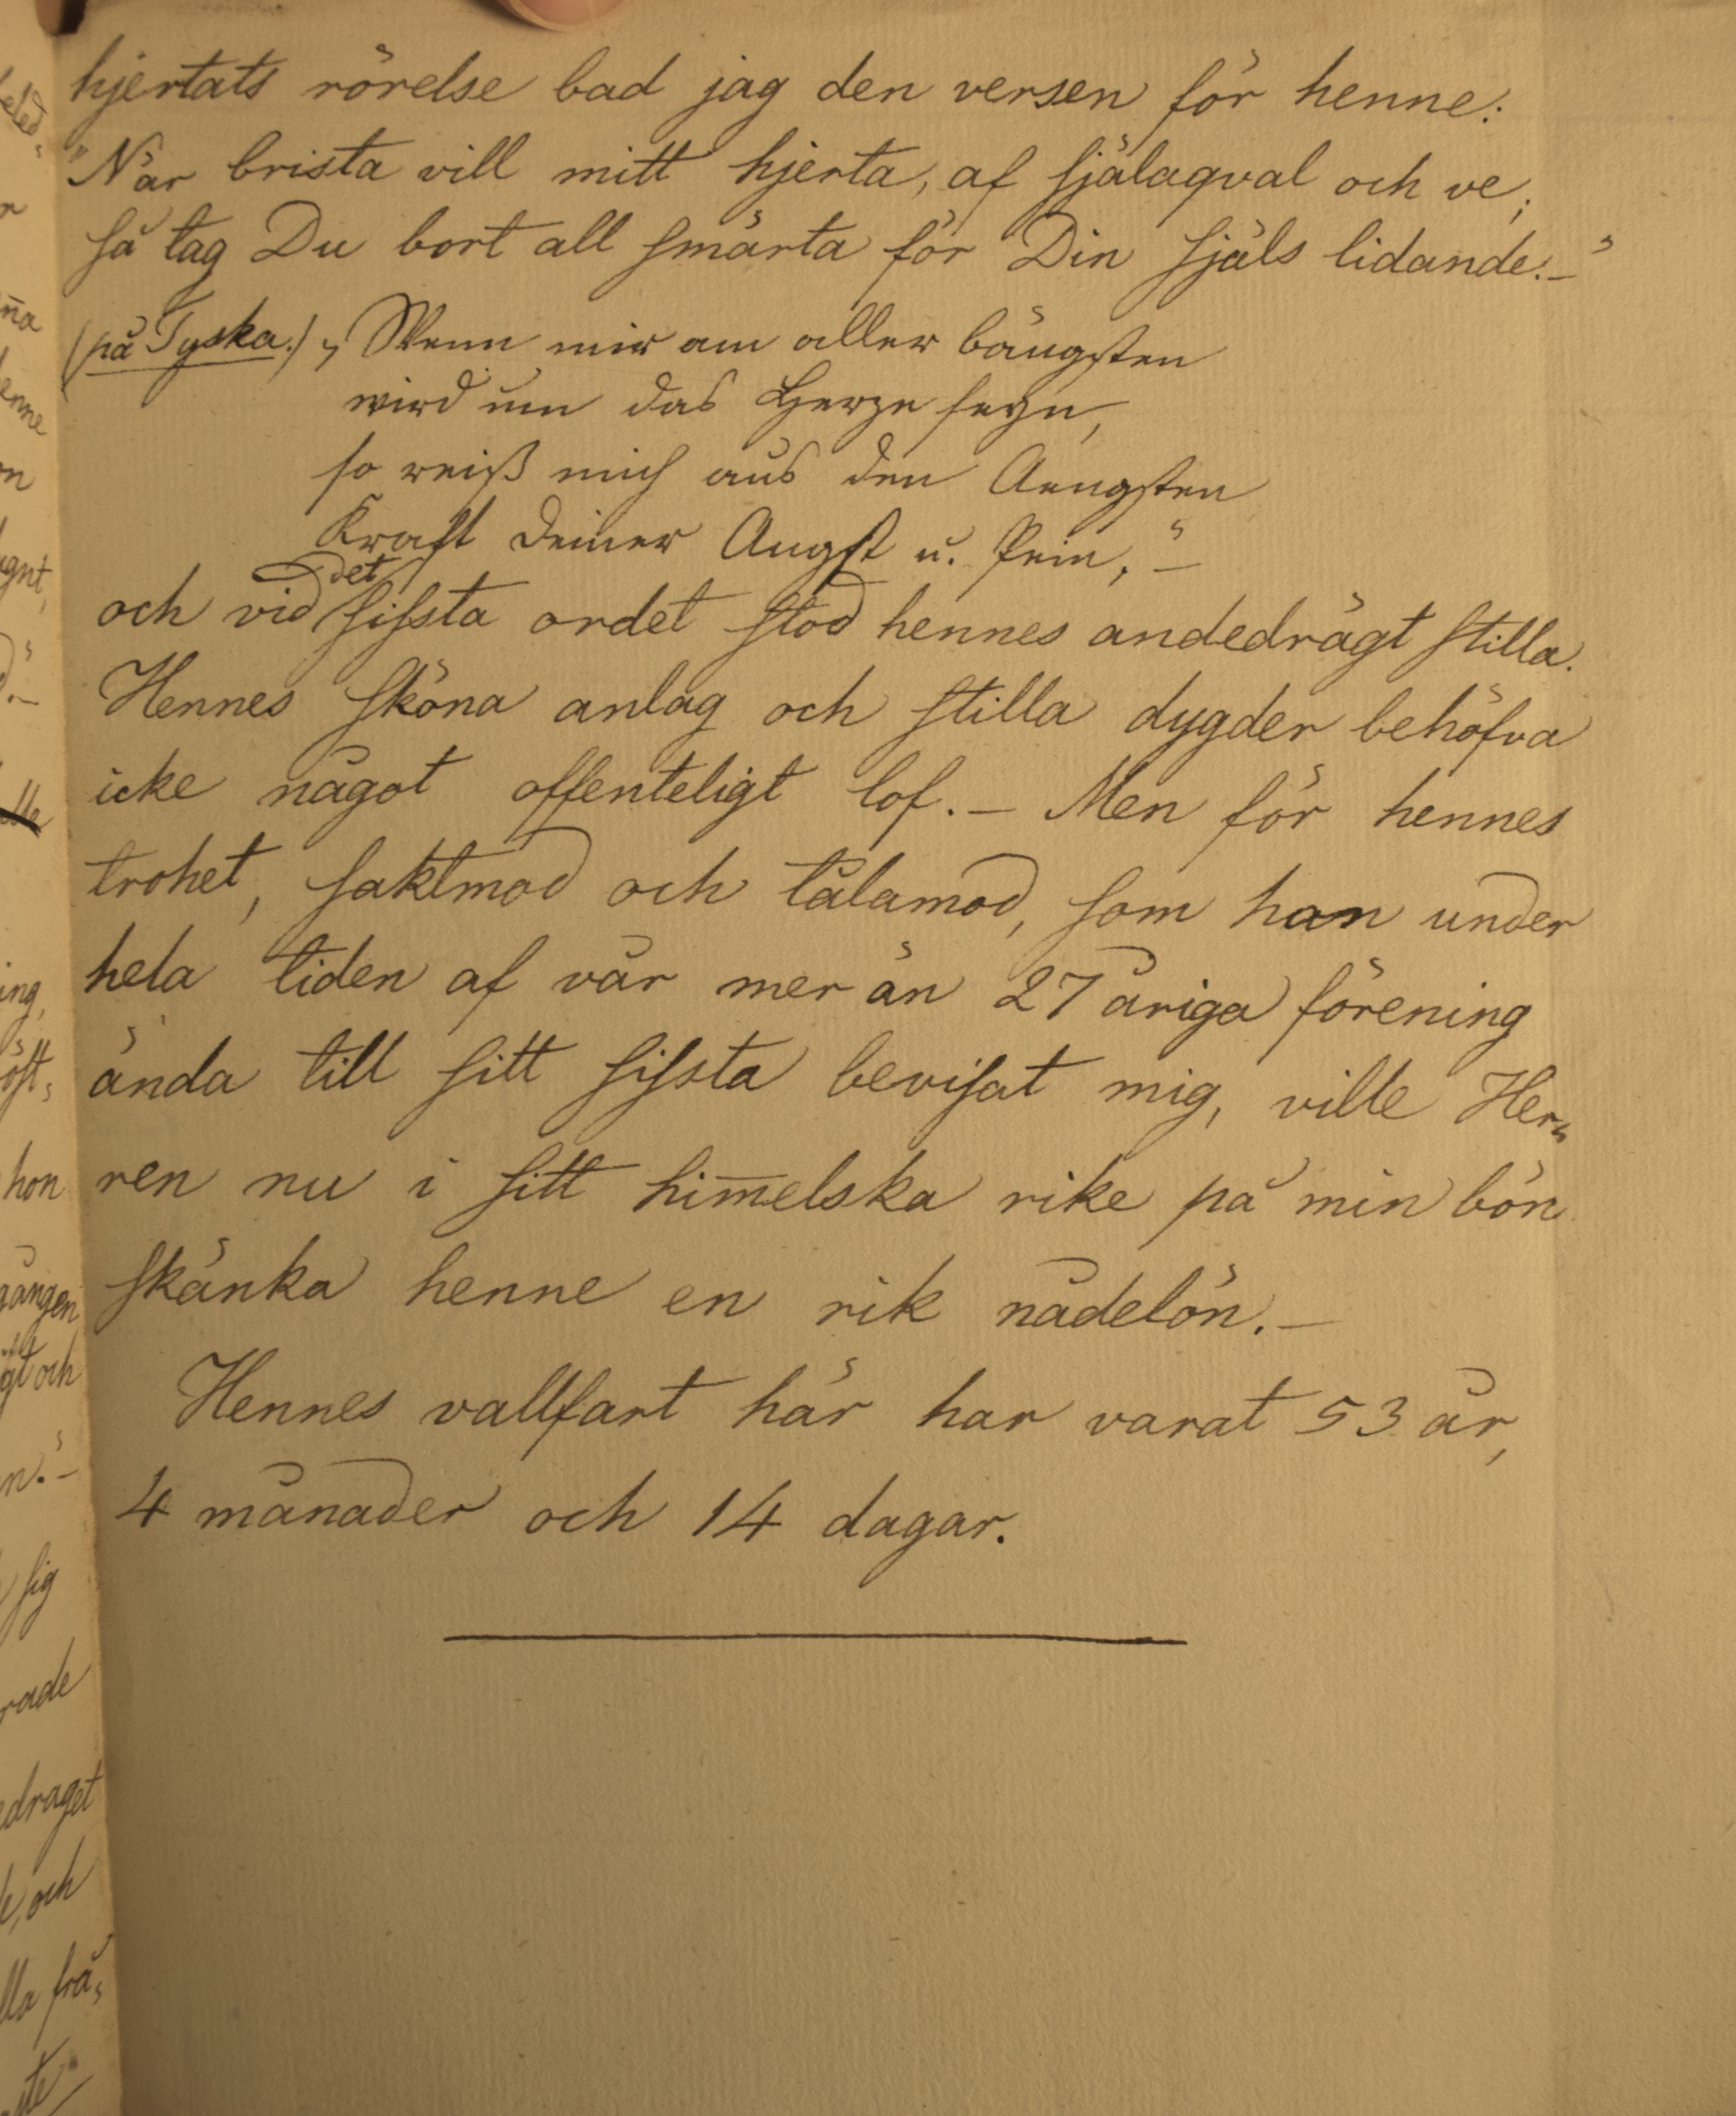 hjertats rörelse bad jag den versen för henne:
"När brista vill mitt hjerta, af själaqval och ve,
så tag Du bort all smärta för Din själs lidande.–"
(på Tyska.) „Wenn mir am aller bängsten
wird um das Herze seyn,
so reiß mich aus den Aengsten
Kraft deiner Angst u. Pein,"–
det
och vid sissta ordet stod hennes andedrägt stilla.
Hennes sköna anlag och stilla dygder behöfva
icke något offenteligt lof.– Men för hennes
trohet, saktmod och tålamod, som han under
hela tiden af vår mer än 27 åriga förening
ända till sitt sissta bevisat mig, ville Her=
ren nu i sitt him̅elska rike på min bön
skänka henne en rik nådelön.–
Hennes vallfart här har varat 53 år,
4 månader och 14 dagar.
hon
gången
och
sig
rade
draget
och